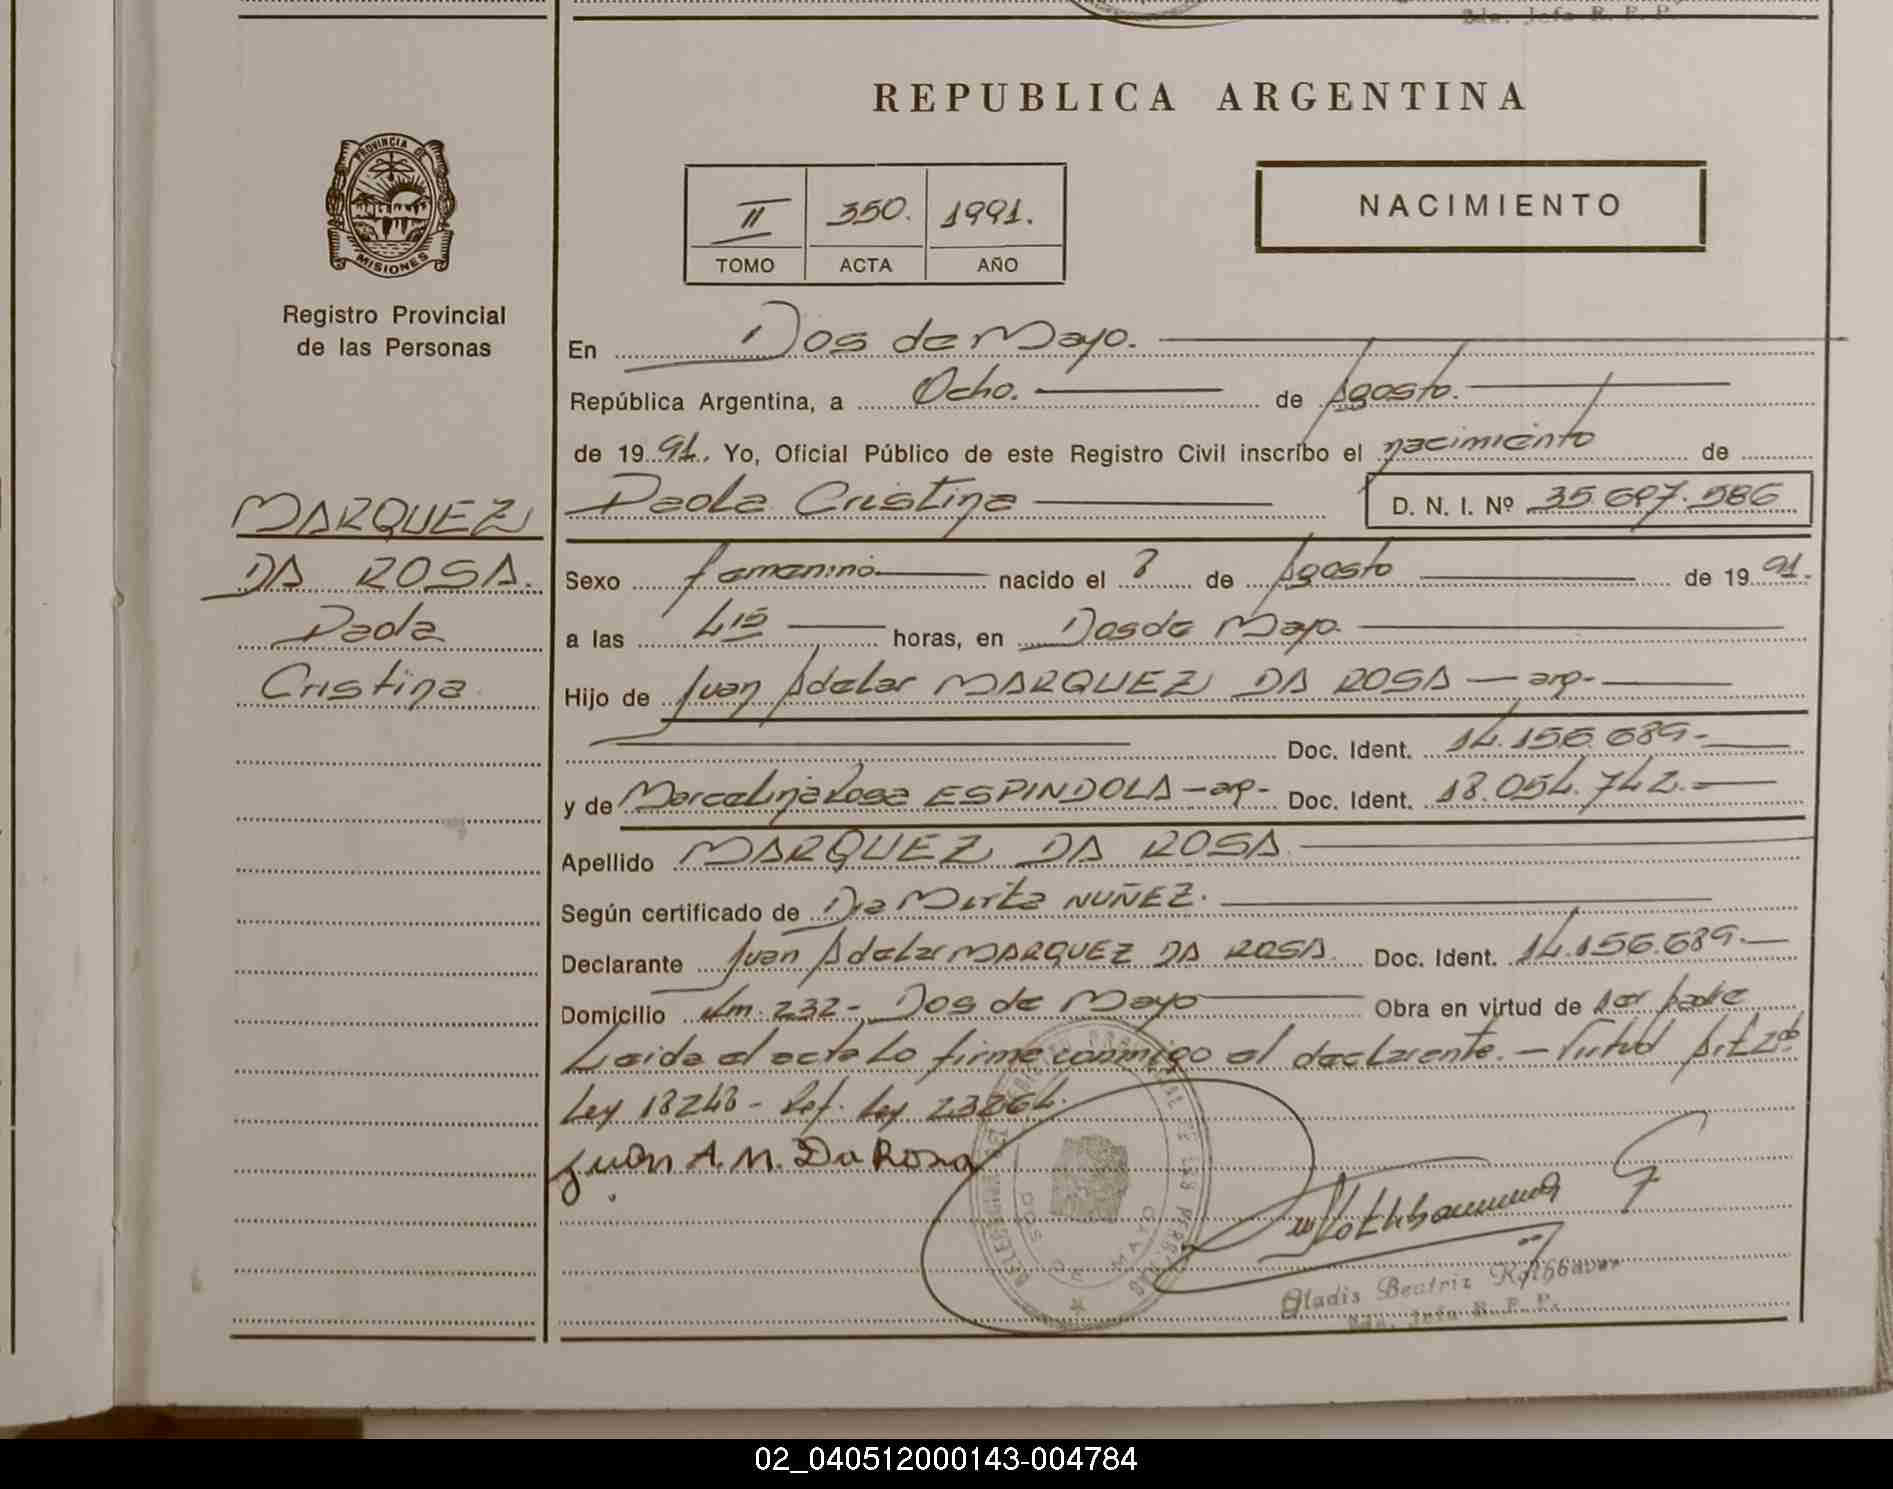 Bda. Jefa R. P. P.
REPUBLICA ARGENTINA
PROVINCIA DE
MISIONES
Registro Provincial
de las Personas
II 350. 1991.
TOMO ACTA AÑO
NACIMIENTO
En Dos de Mayo.
República Argentina, a Ocho. de Agosto.
de 1991. Yo, Oficial Público de este Registro Civil inscribo el nacimiento de
Paola Cristina D. N. I. Nº 35.697.586
MARQUEZ
DA ROSA.
Paola
Cristina
Sexo femenino nacido el 8 de Agosto de 1991.
a las 4 15 horas, en Dos de Mayo.
Hijo de Juan Adelar MARQUEZ DA ROSA - arg-
Doc. Ident. 14.156.689-
y de Marcelina Rosa ESPINDOLA - arg- Doc. Ident. 18.054.742.-
Apellido MARQUEZ DA ROSA.
Según certificado de Dra Mirta NUÑEZ.
Declarante Juan Adelar MARQUEZ DA ROSA. Doc. Ident. 14.156.689.-
Domicilio Km. 232 - Dos de Mayo Obra en virtud de ser padre
Leida el acta Lo firme conmigo el declarante. - Virtud Art 2do
Ley 18248 - Ref. Ley 23264.
Juan A. M. Da Rosa
DOS DE MAYO
Gladis Beatriz Rothbauer
Bda. Jefa R. P. P.
02_040512000143-004784